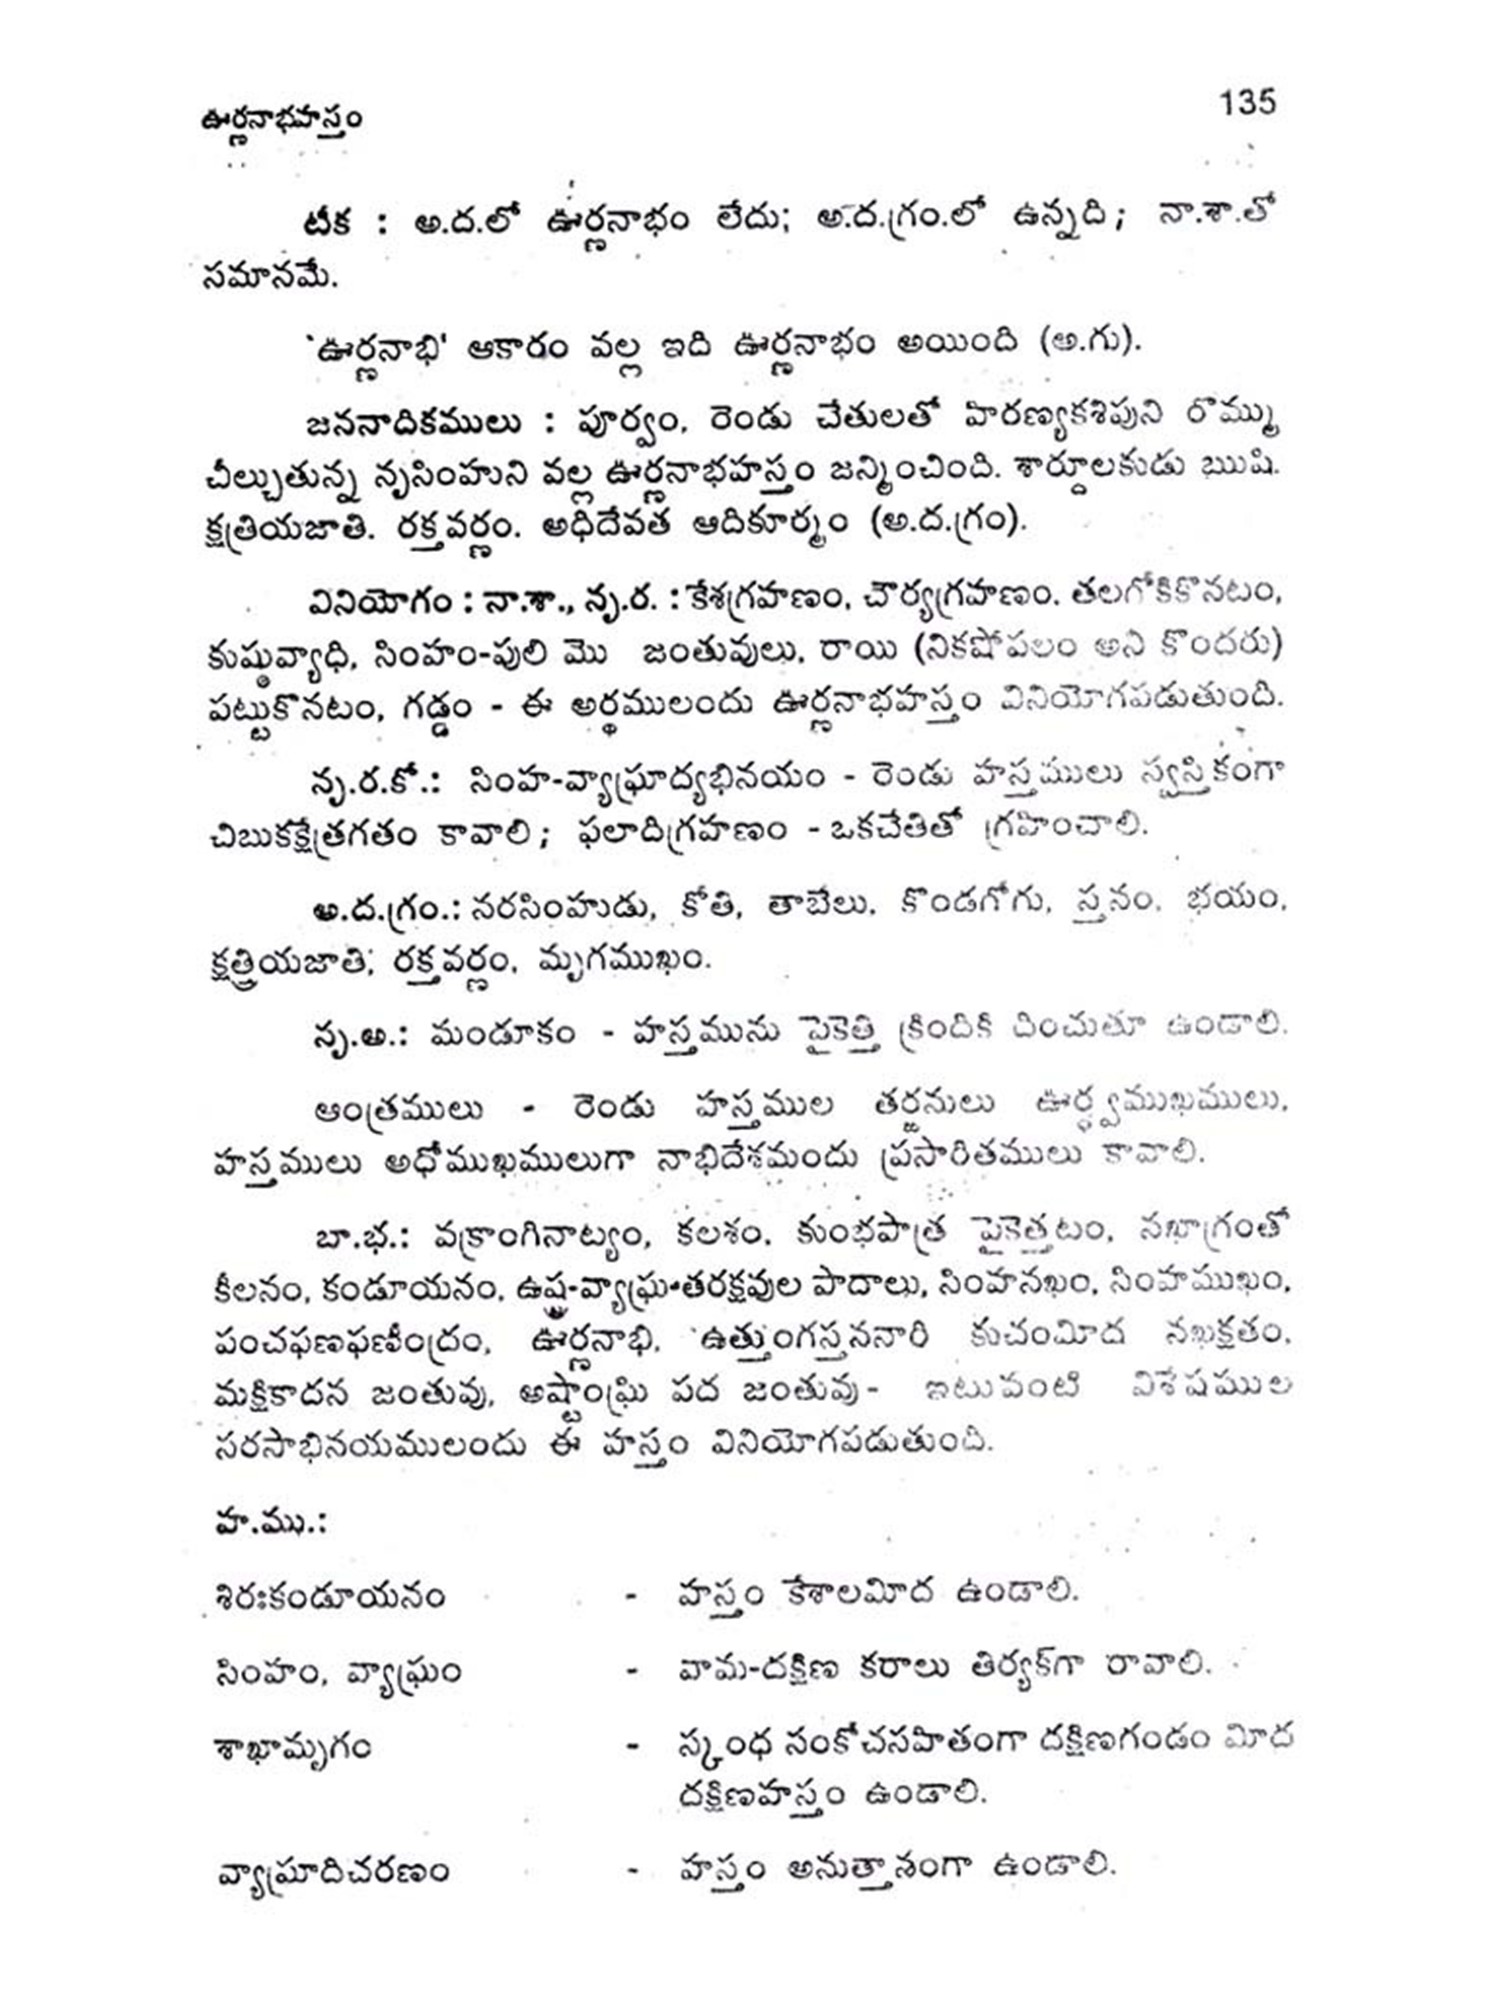 ఊర్ణనాభహస్తం 135
టీక : అ.ద.లో ఊర్ణనాభం లేదు; అ.ద.గ్రం.లో ఉన్నది; నా.శా.తో
సమానమే.
'ఊర్ణనాభి' ఆకారం వల్ల ఇది ఊర్ణనాభం అయింది (అ.గు).
జననాదికములు : పూర్వం, రెండు చేతులతో హిరణ్యకశిపుని రొమ్ము
చీల్చుతున్న నృసింహుని వల్ల ఊర్ణనాభహస్తం జన్మించింది. శార్దూలకుడు ఋషి.
క్షత్రియజాతి. రక్తవర్ణం. అధిదేవత ఆదికూర్మం (అ.ద.గ్రం).
వినియోగం : నా.శా., నృ.ర. : కేశగ్రహణం, చౌర్యగ్రహణం. తలగోకికొనటం,
కుష్ఠువ్యాధి, సింహం-పులి మొ జంతువులు, రాయి (నికషోపలం అని కొందరు)
పట్టుకొనటం, గడ్డం - ఈ అర్థములందు ఊర్ణనాభహస్తం వినియోగపడుతుంది.
నృ.ర.కో.: సింహ-వ్యాఘ్రాద్యభినయం - రెండు హస్తములు స్వస్తికంగా
చిబుకక్షేత్రగతం కావాలి; ఫలాదిగ్రహణం - ఒకచేతితో గ్రహించాలి.
అ.ద.గ్రం.: నరసింహుడు, కోతి, తాబేలు. కొండగోగు, స్తనం, భయం,
క్షత్త్రియజాతి; రక్తవర్ణం, మృగముఖం.
నృ.అ.: మండూకం - హస్తమును పైకెత్తి క్రిందికి దించుతూ ఉండాలి.
ఆంత్రములు - రెండు హస్తముల తర్జనులు ఊర్ధ్వముఖములు,
హస్తములు అధోముఖములుగా నాభిదేశమందు ప్రసారితములు కావాలి.
బా.భ.: వక్రాంగినాట్యం, కలశం, కుంభపాత్ర పైకెత్తటం, నఖాగ్రంతో
కీలనం, కండూయనం, ఉష్ట్ర-వ్యాఘ్ర-తరక్షవుల పాదాలు, సింహనఖం, సింహముఖం,
పంచఫణఫణీంద్రం, ఊర్ణనాభి, ఉత్తుంగస్తననారి కుచంమీద నఖక్షతం,
మక్షికాదన జంతువు, అష్టాంఘ్రి పద జంతువు- ఇటువంటి విశేషముల
సరసాభినయములందు ఈ హస్తం వినియోగపడుతుంది.
హ.ము.:
శిరఃకండూయనం - హస్తం కేశాలమీద ఉండాలి.
సింహం, వ్యాఘ్రం - వామ-దక్షిణ కరాలు తిర్యక్‌గా రావాలి.
శాఖామృగం - స్కంధ సంకోచసహితంగా దక్షిణగండం మీద
దక్షిణహస్తం ఉండాలి.
వ్యాఘ్రాదిచరణం - హస్తం అనుత్తానంగా ఉండాలి.